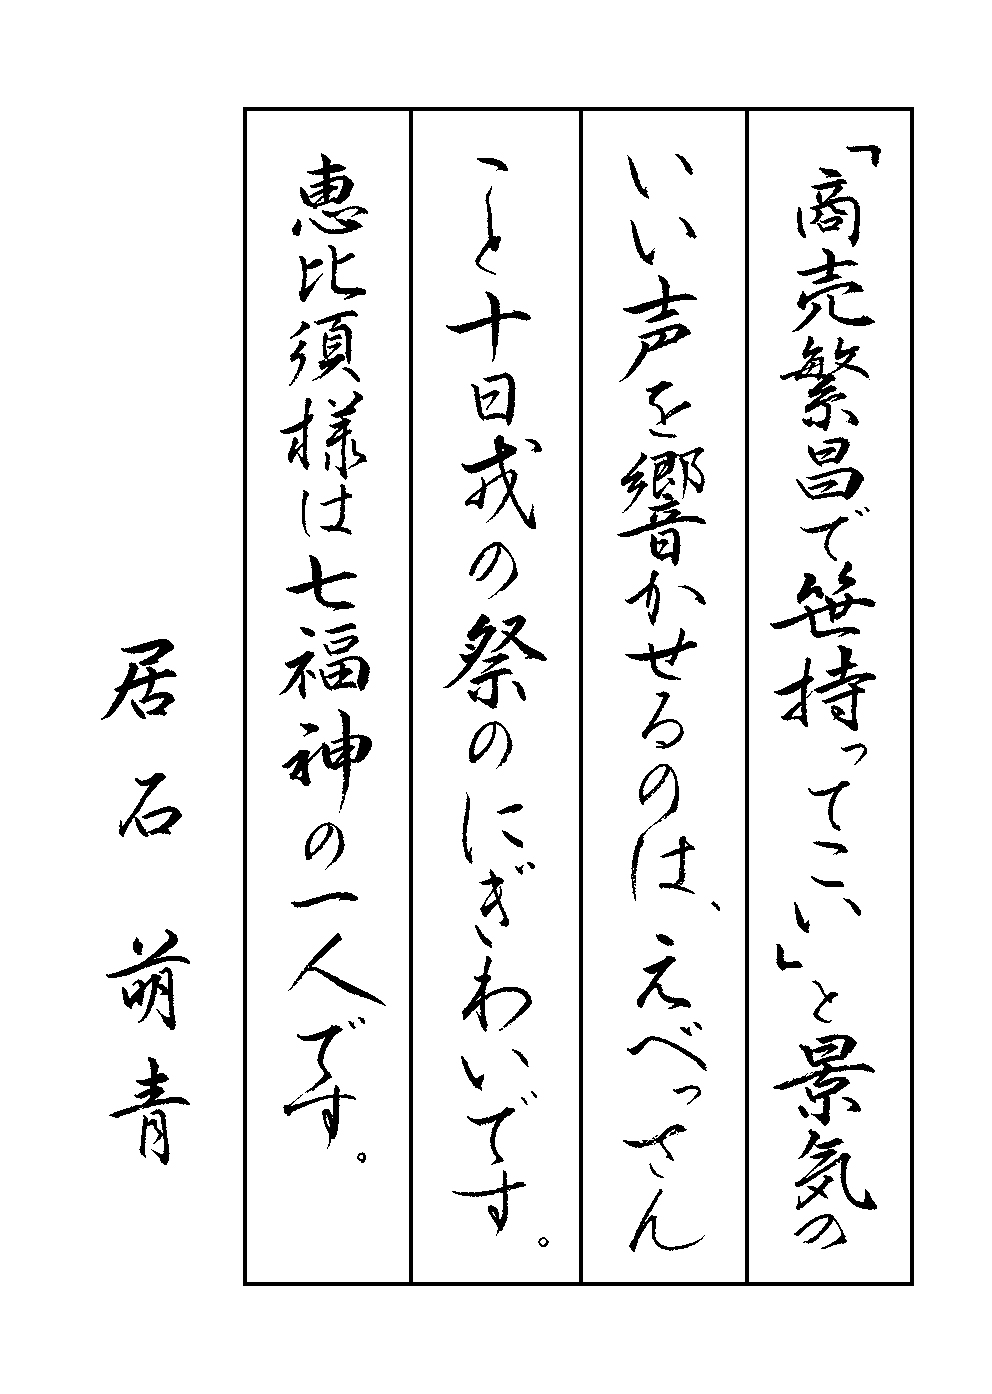 「商売繁昌で笹持ってこい」と景気の
いい声を響かせるのは、えべっさん
こと十日戎の祭のにぎわいです。
恵比須様は七福神の一人です。
居石萌青